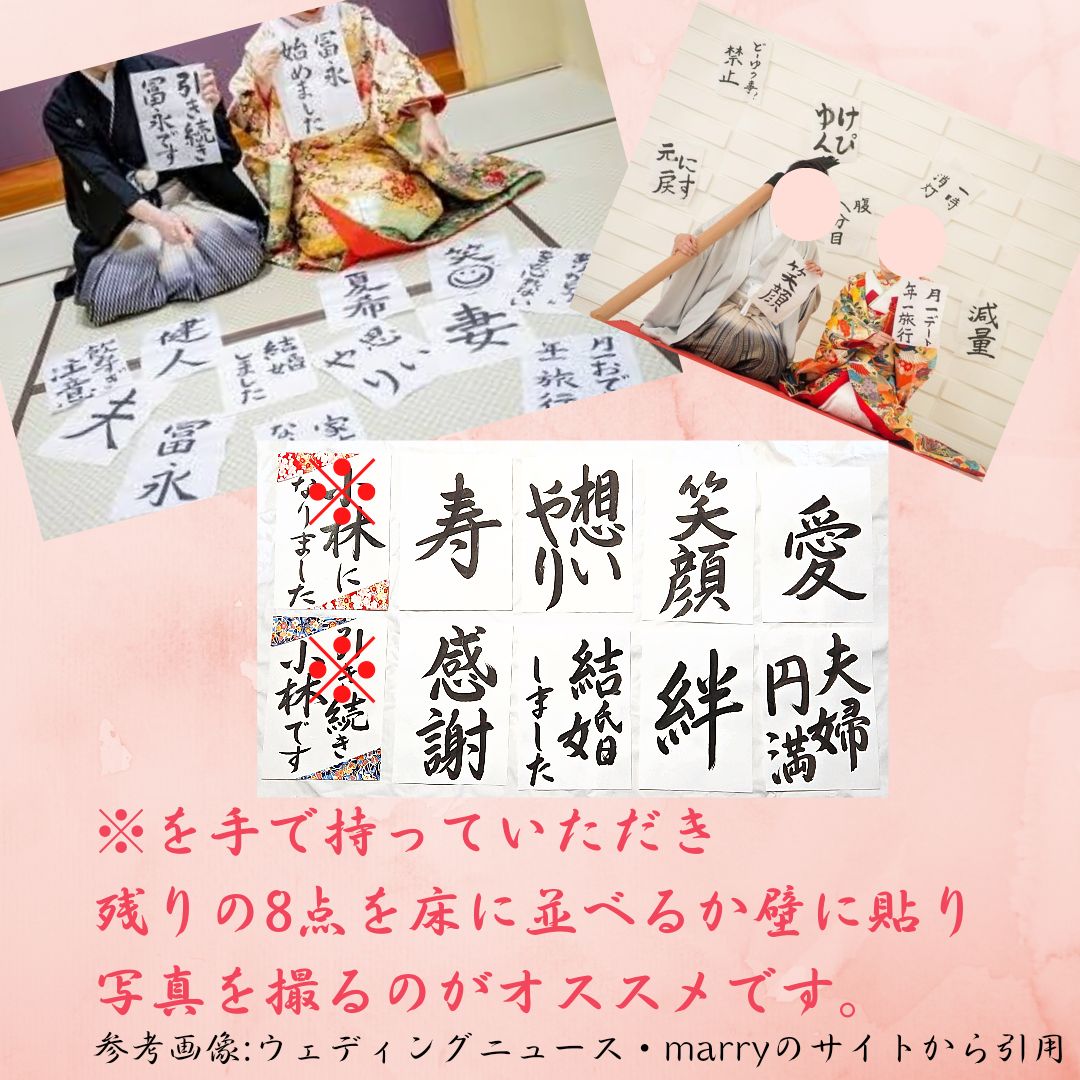 引き続き
冨永です
冨永
始めました
笑
妻
夏希
思いやり
健人
結婚
しました
注意
冨永
月一おで
年一旅行
どーゆう事?
禁止
けぴ
ゆん
元に戻す
一時
消灯
腹
八分目
笑顔
月一デート
年一旅行
減量
※
小林に
なりました
寿
想い
やり
笑顔
愛
※
引き続き
小林です
感謝
結婚
しました
絆
夫婦
円満
※を手で持っていただき
残りの8点を床に並べるか壁に貼り
写真を撮るのがオススメです。
参考画像:ウェディングニュース・marryのサイトから引用